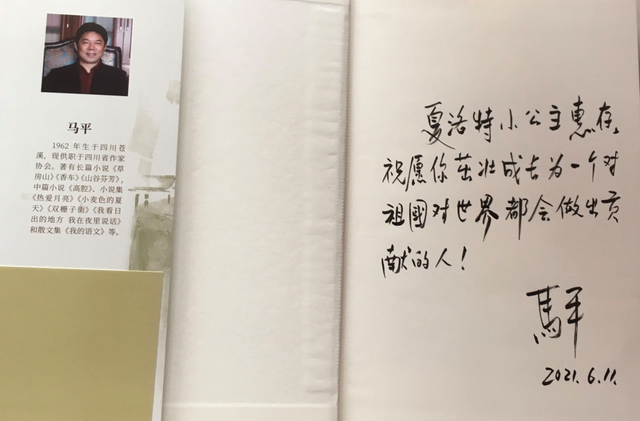 马平
1962 年生于四川苍
溪，现供职于四川省作家
协会。著有长篇小说《草
房山》《香车》《山谷芬芳》，
中篇小说《高腔》，小说集
《热爱月亮》《小麦色的夏
天》《双栅子街》《我看日
出的地方 我在夜里说话》
和散文集《我的语文》等。
夏洛特小公主惠存，
祝愿你茁壮成长为一个对
祖國对世界都会做出贡
献的人！
馬平
2021.6.11.